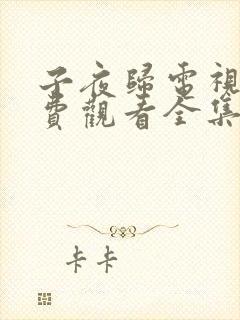 子夜歸電視
費觀看全集
卡卡